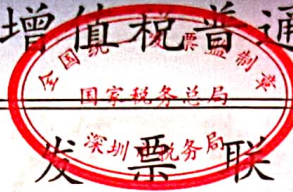 增值税普通
全国统一发票监制章
国家税务总局
深圳市税务局
发票联